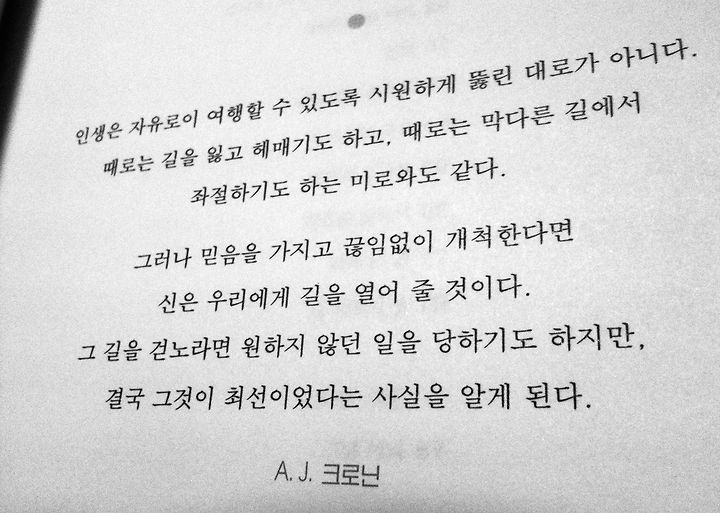 인생은 자유로이 여행할 수 있도록 시원하게 뚫린 대로가 아니다.
때로는 길을 잃고 헤매기도 하고, 때로는 막다른 길에서
좌절하기도 하는 미로와도 같다.
그러나 믿음을 가지고 끊임없이 개척한다면
신은 우리에게 길을 열어 줄 것이다.
그 길을 걷노라면 원하지 않던 일을 당하기도 하지만,
결국 그것이 최선이었다는 사실을 알게 된다.
A. J. 크로닌